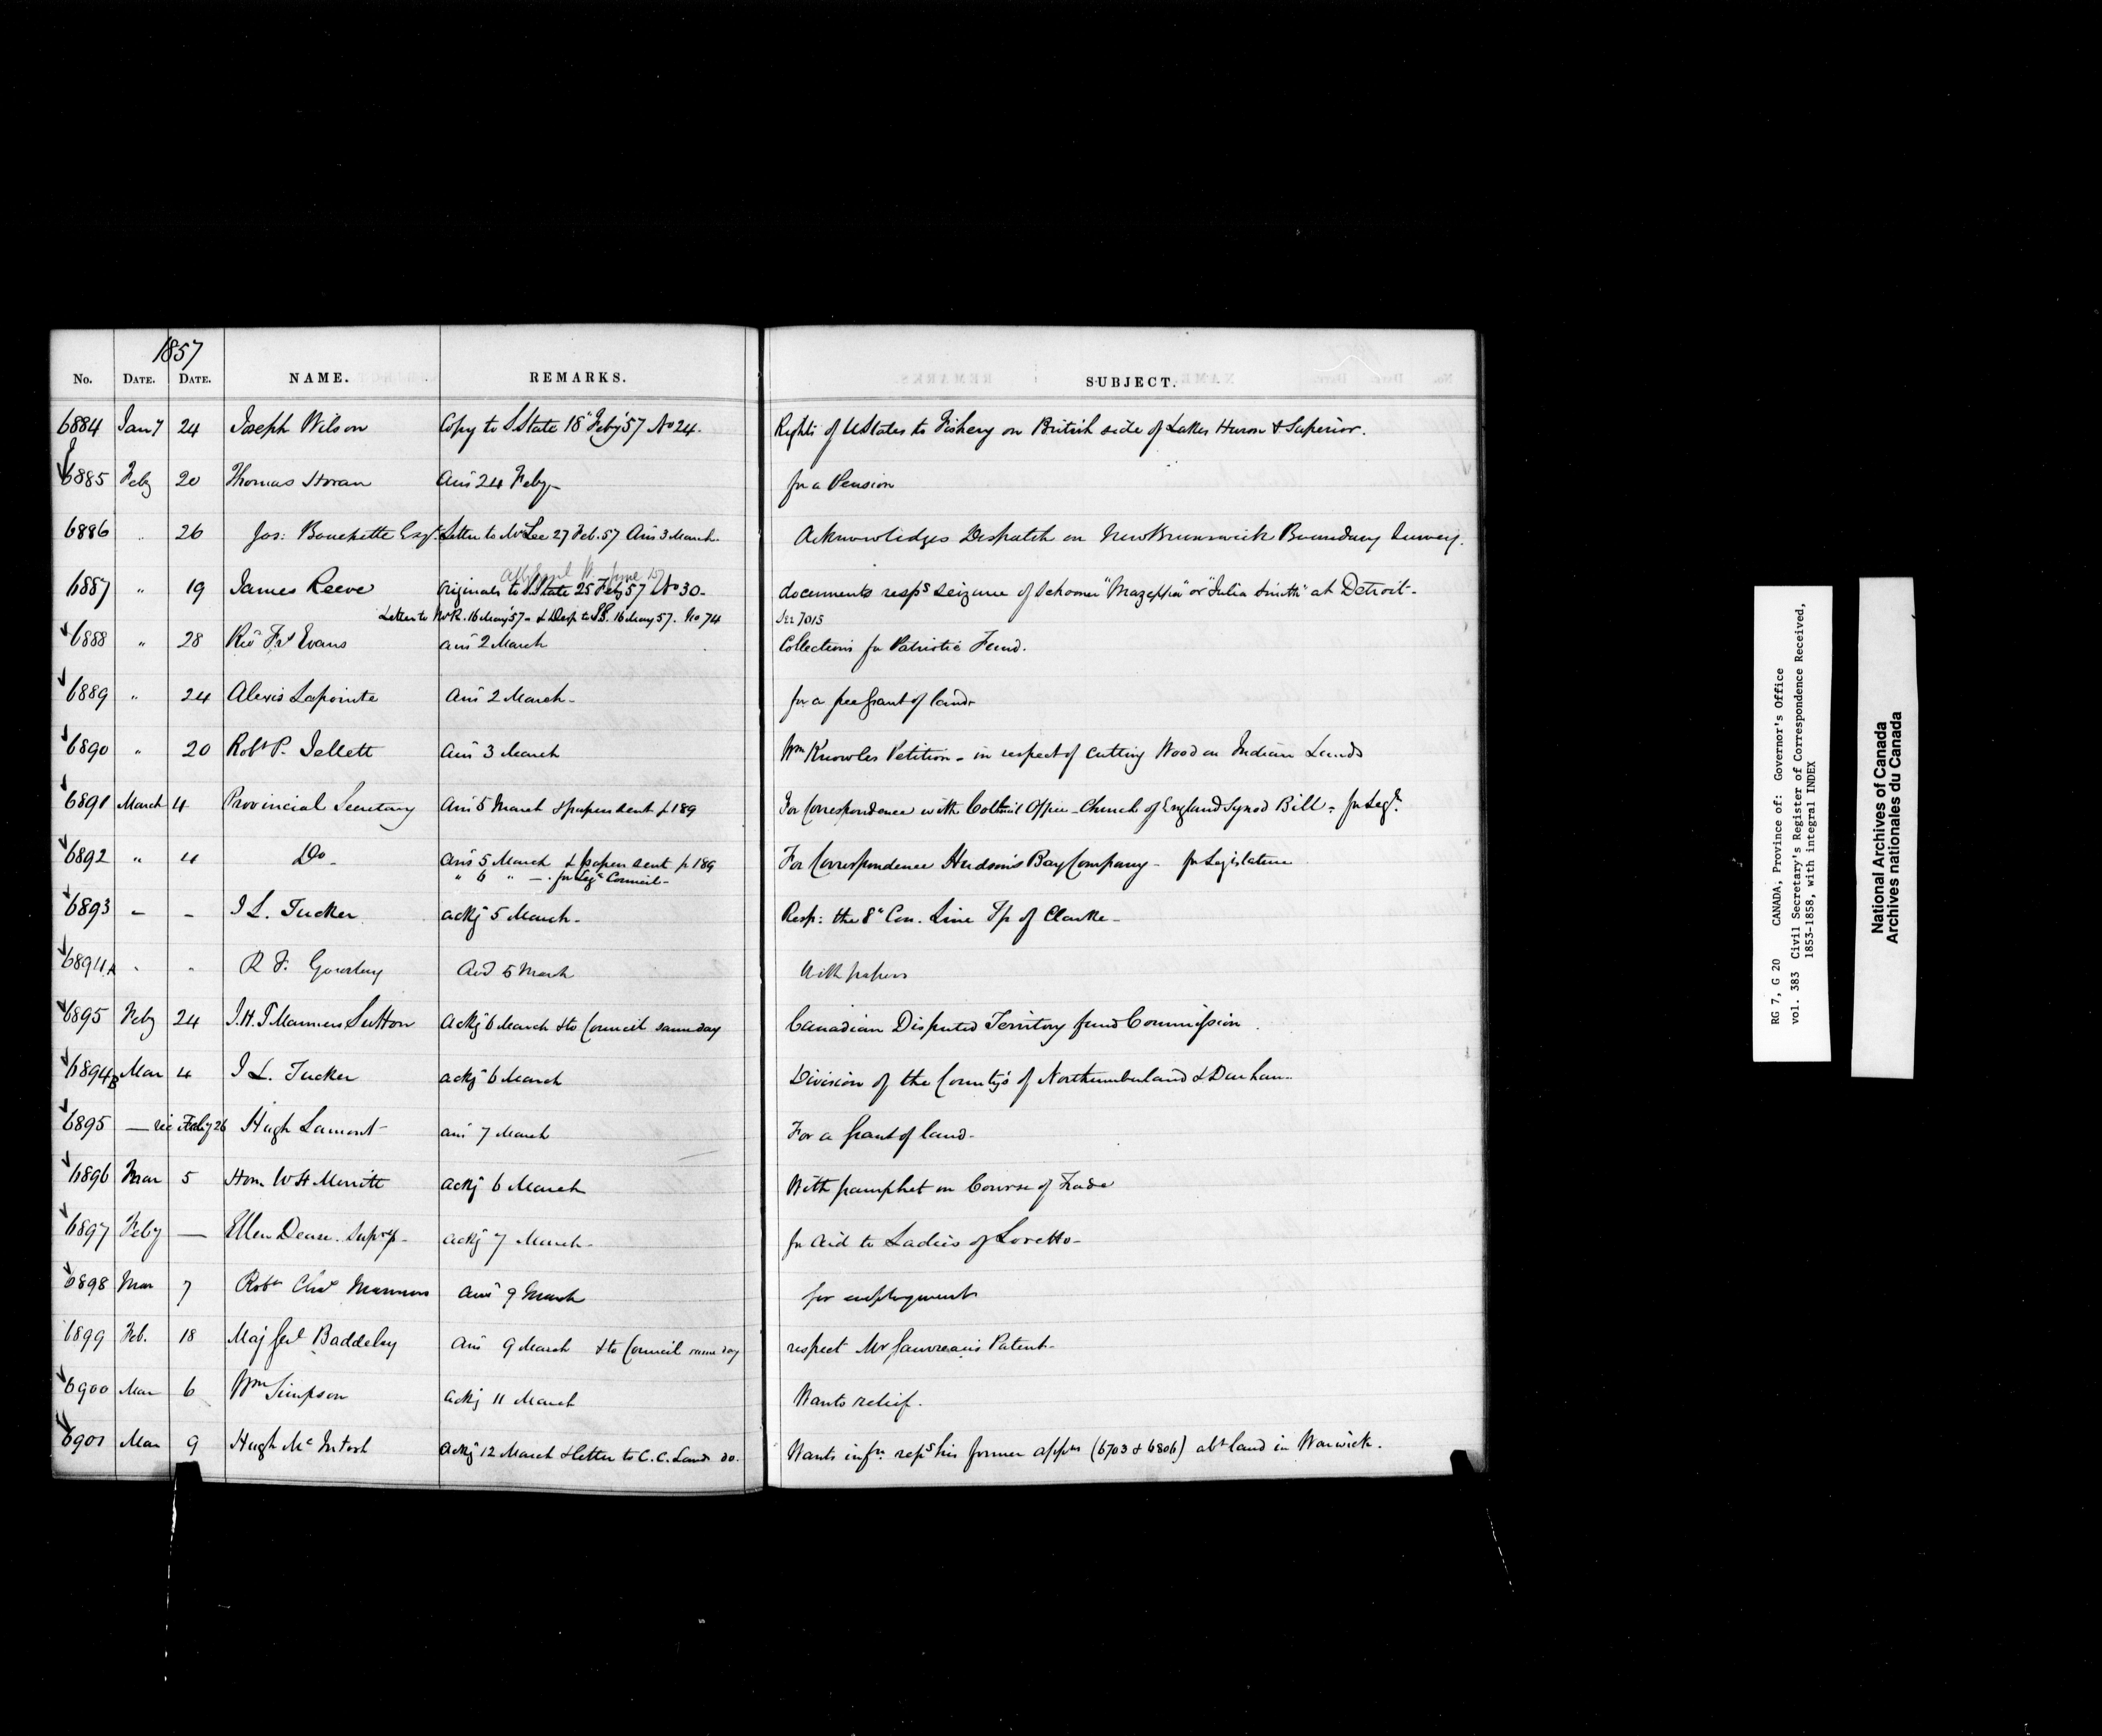 1857
No. DATE. DATE. NAME. REMARKS. SUBJECT.
6884 Jany 24 Joseph Wilson Copy to S. State 18" Feby '57 No 24. Rights of U States to Fishery on British side of Lakes Huron & Superior.
6885 Feby 20 Thomas Horan Ans 24 Feby - for a Pension
6886 " 26 Jos: Bouchette Esqr. Letter to Mr Lee 27 Feb. 57 Ans 3 March. Acknowledges Despatch on New Brunswick Boundary Survey.
June 57
6887 " 19 James Reeve Originals to S. State 25 Feby 57 No 30 - documents resps seizure of Schooner "Mazeppa" or "Julia Smith" at Detroit -
Letter to Mr R. 16 May '57 - & Desp to 16 May 57. No 74 See 7015
6888 " 28 Rev Frs Evans ans 2 March Collections for Patriotic Fund.
6889 " 24 Alexis Lapointe Ans 2 March - for a free grant of land -
6890 " 20 Robt P. Jellett Ans 3 March Wm Knowles Petition - in respect of cutting Wood on Indian Lands
6891 March 4 Provincial Secretary Ans 5 March & papers sent p 189 For Correspondence with Colonial Office - Church of England Synod Bill - for Legre
6892 " 4 Do - Ans 5 March & papers sent p 189 For Correspondence Hudson's Bay Company - for Legislature
" 6 " - . for Lege Council -
6893 - - J L. Tucker ackg 5 March - Resp: the 8" Con. Line Tp of Clarke -
6894A " " R F. Gourlay 5 March With papers
6895 Feby 24 J. H. T Manners Sutton Ackg 6 March & to Council same day Canadian Disputed Territory fund Commission
6894B Mar 4 J L. Tucker ackg 6 March Division of the County's of Northumberland & Durham -
6895 — Feby 26 Hugh Lamont ans 7 March For a grant of land -
6896 Mar 5 Hon. W H Merritt ackg 6 March With pamphlet on Course of Trade
6897 Feby — Ellen Dease. ackg 7 March - for Aid to Ladies of Loretto -
6898 Mar 7 Robt Chas Manners ans 9 March for employment
6899 Feb. 18 Maj Genl Baddeley Ans 9 March & to Council same day respect Mr Gauvreau's Patent -
6900 Mar 6 Wm Simpson ackg 11 March Wants relief.
6901 Mar 9 Hugh Mc Intosh Ackg 12 March & letter to C. C. Lands do. Wants infn. resps his former appns (6703 & 6806) abt land in Warwick.
RG 7, G 20 CANADA, Province of: Governor's Office
vol. 383 Civil Secretary's Register of Correspondence Received,
1853-1858, with integral INDEX
National Archives of Canada
Archives nationales du Canada